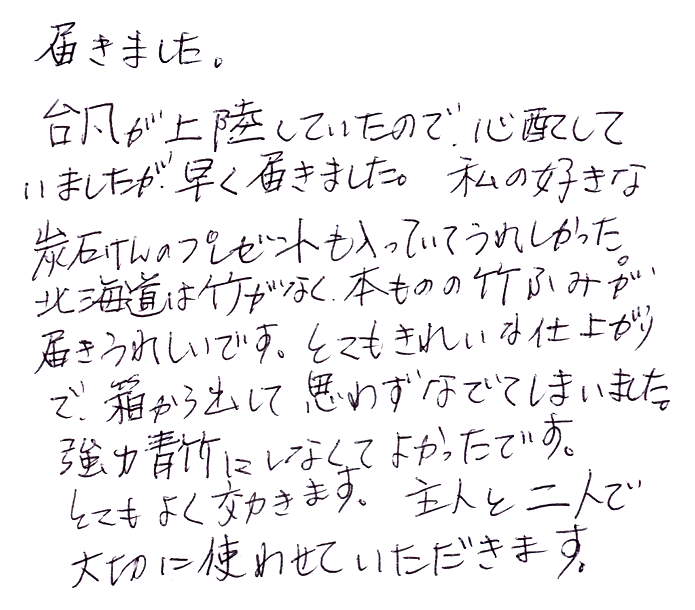 届きました。
台風が上陸していたので、心配して
いましたが、早く届きました。 私の好きな
炭石けんのプレゼントも入っていてうれしかった。
北海道は竹がなく、本ものの竹ふみが
届きうれしいです。とてもきれいな仕上がり
で、箱から出して思わずなでてしまいました。
強力青竹にしなくてよかったです。
とてもよく効きます。 主人と二人で
大切に使わせていただきます。